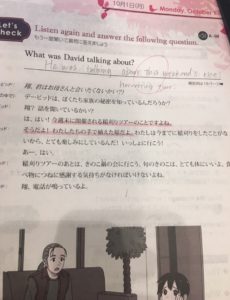 10月1日(月)
Monday, October 1
Let's
Check
Listen again and answer the following question.
もう一度聞いて質問に答えましょう
What was David talking about?
He was talking about this weekend's rice
harvesting tour
翔、君はお母さんと会いたくないかい？
デービッドは、ぼくたち家族の秘密を知っているんだろうか？
翔？ 話を聞いているかい？
は、はい！ 今週末に開催される稲刈りツアーのことですよね。
そうだよ！ わたしたちのまちで植えた稲だよ。わたしは今までに稲刈りをしたことがな
いから、とても楽しみにしているんだ！ いっしょに行こう！
あー、はい。
稲刈りツアーのあとは、きのこ鍋の会に行こう。旬のきのこは、とても体にいいよ。食
べ物につねに感謝する気持ちがなければいけないよね。
翔、電話が鳴っているよ。